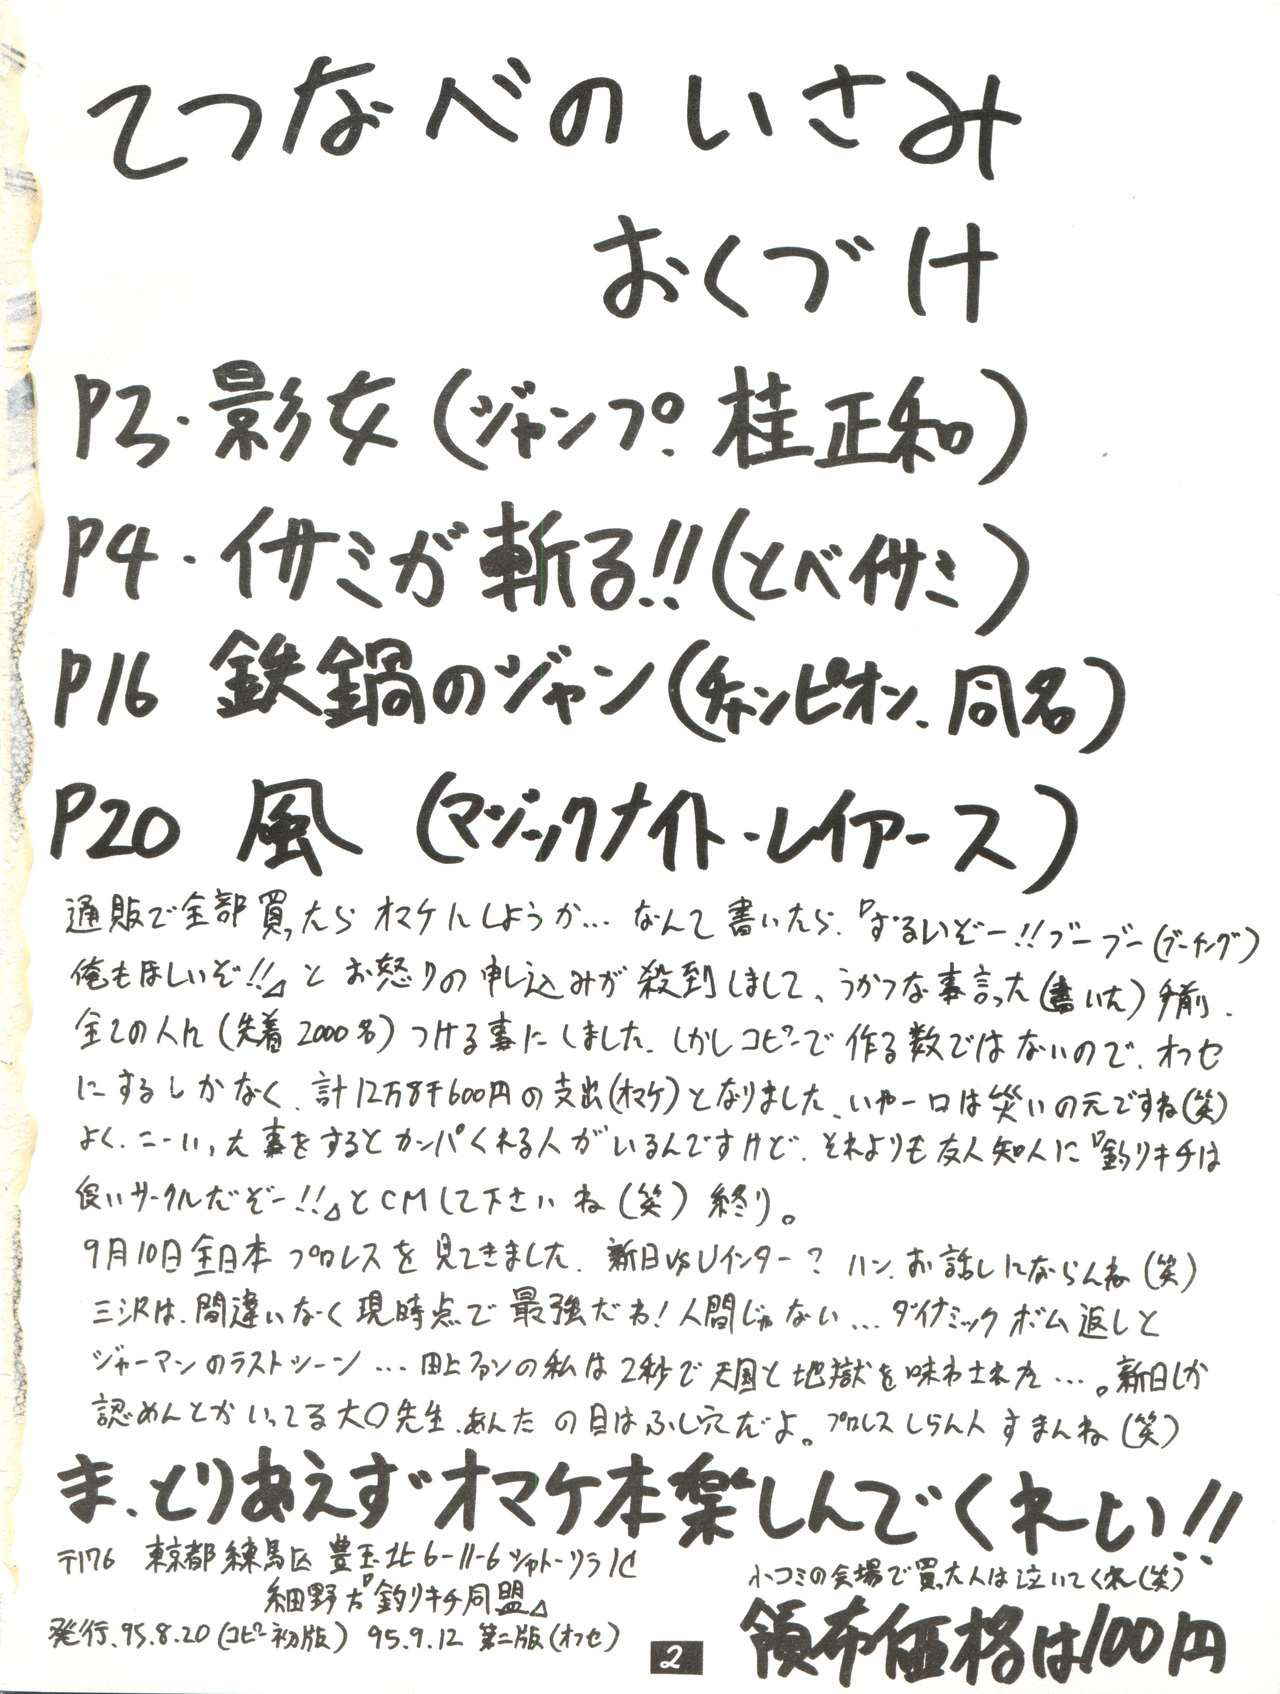 てつなべのいさみ
おくづけ
P3・影女(ジャンプ、桂正和)
P4・イサミが斬る!!(とべイサミ)
P16 鉄鍋のジャン(チャンピオン、同名)
P20 風 (マジックナイト・レイアース)
通販で全部買ったらオマケにしようか… なんて書いたら、『ずるいぞー!!ブーブー(ブーイング)
俺もほしいぞ!!』とお怒りの申し込みが殺到しまして、うかつな事言った(書いた)手前、
全ての人に(先着2000名)つける事にしました、しかしコピーで作る数ではないので、オフセ
にするしかなく、計12万8千600円の支出(オマケ)となりました、いやー口は災いの元ですね(笑)
よく、こーいった事をするとカンパくれる人がいるんですけど、それよりも友人知人に『釣りキチは
良いサークルだぞー!!』とCMして下さいね(笑)終り。
9月10日全日本プロレスを見てきました、新日vsUインター? ハン、お話しにならんね(笑)
三沢は、間違いなく現時点で最強だね!人間じゃない… ダイナミックボム返しと
ジャーマンのラストシーン… 田上ファンの私は2秒で天国と地獄を味わされた…。新日しか
認めんとかいってる大〇先生、あんたの目はふし穴だよ。プロレスしらん人すまんね(笑)
ま、とりあえずオマケ本楽しんでくれーい!!
〒176 東京都練馬区豊玉北6-11-6シャトーソラ1C
細野方『釣りキチ同盟』
小コミの会場で買った人は泣いてくれ(笑)
発行、95.8.20(コピー初版) 95.9.12 第二版(オフセ)
2
頒布価格は100円